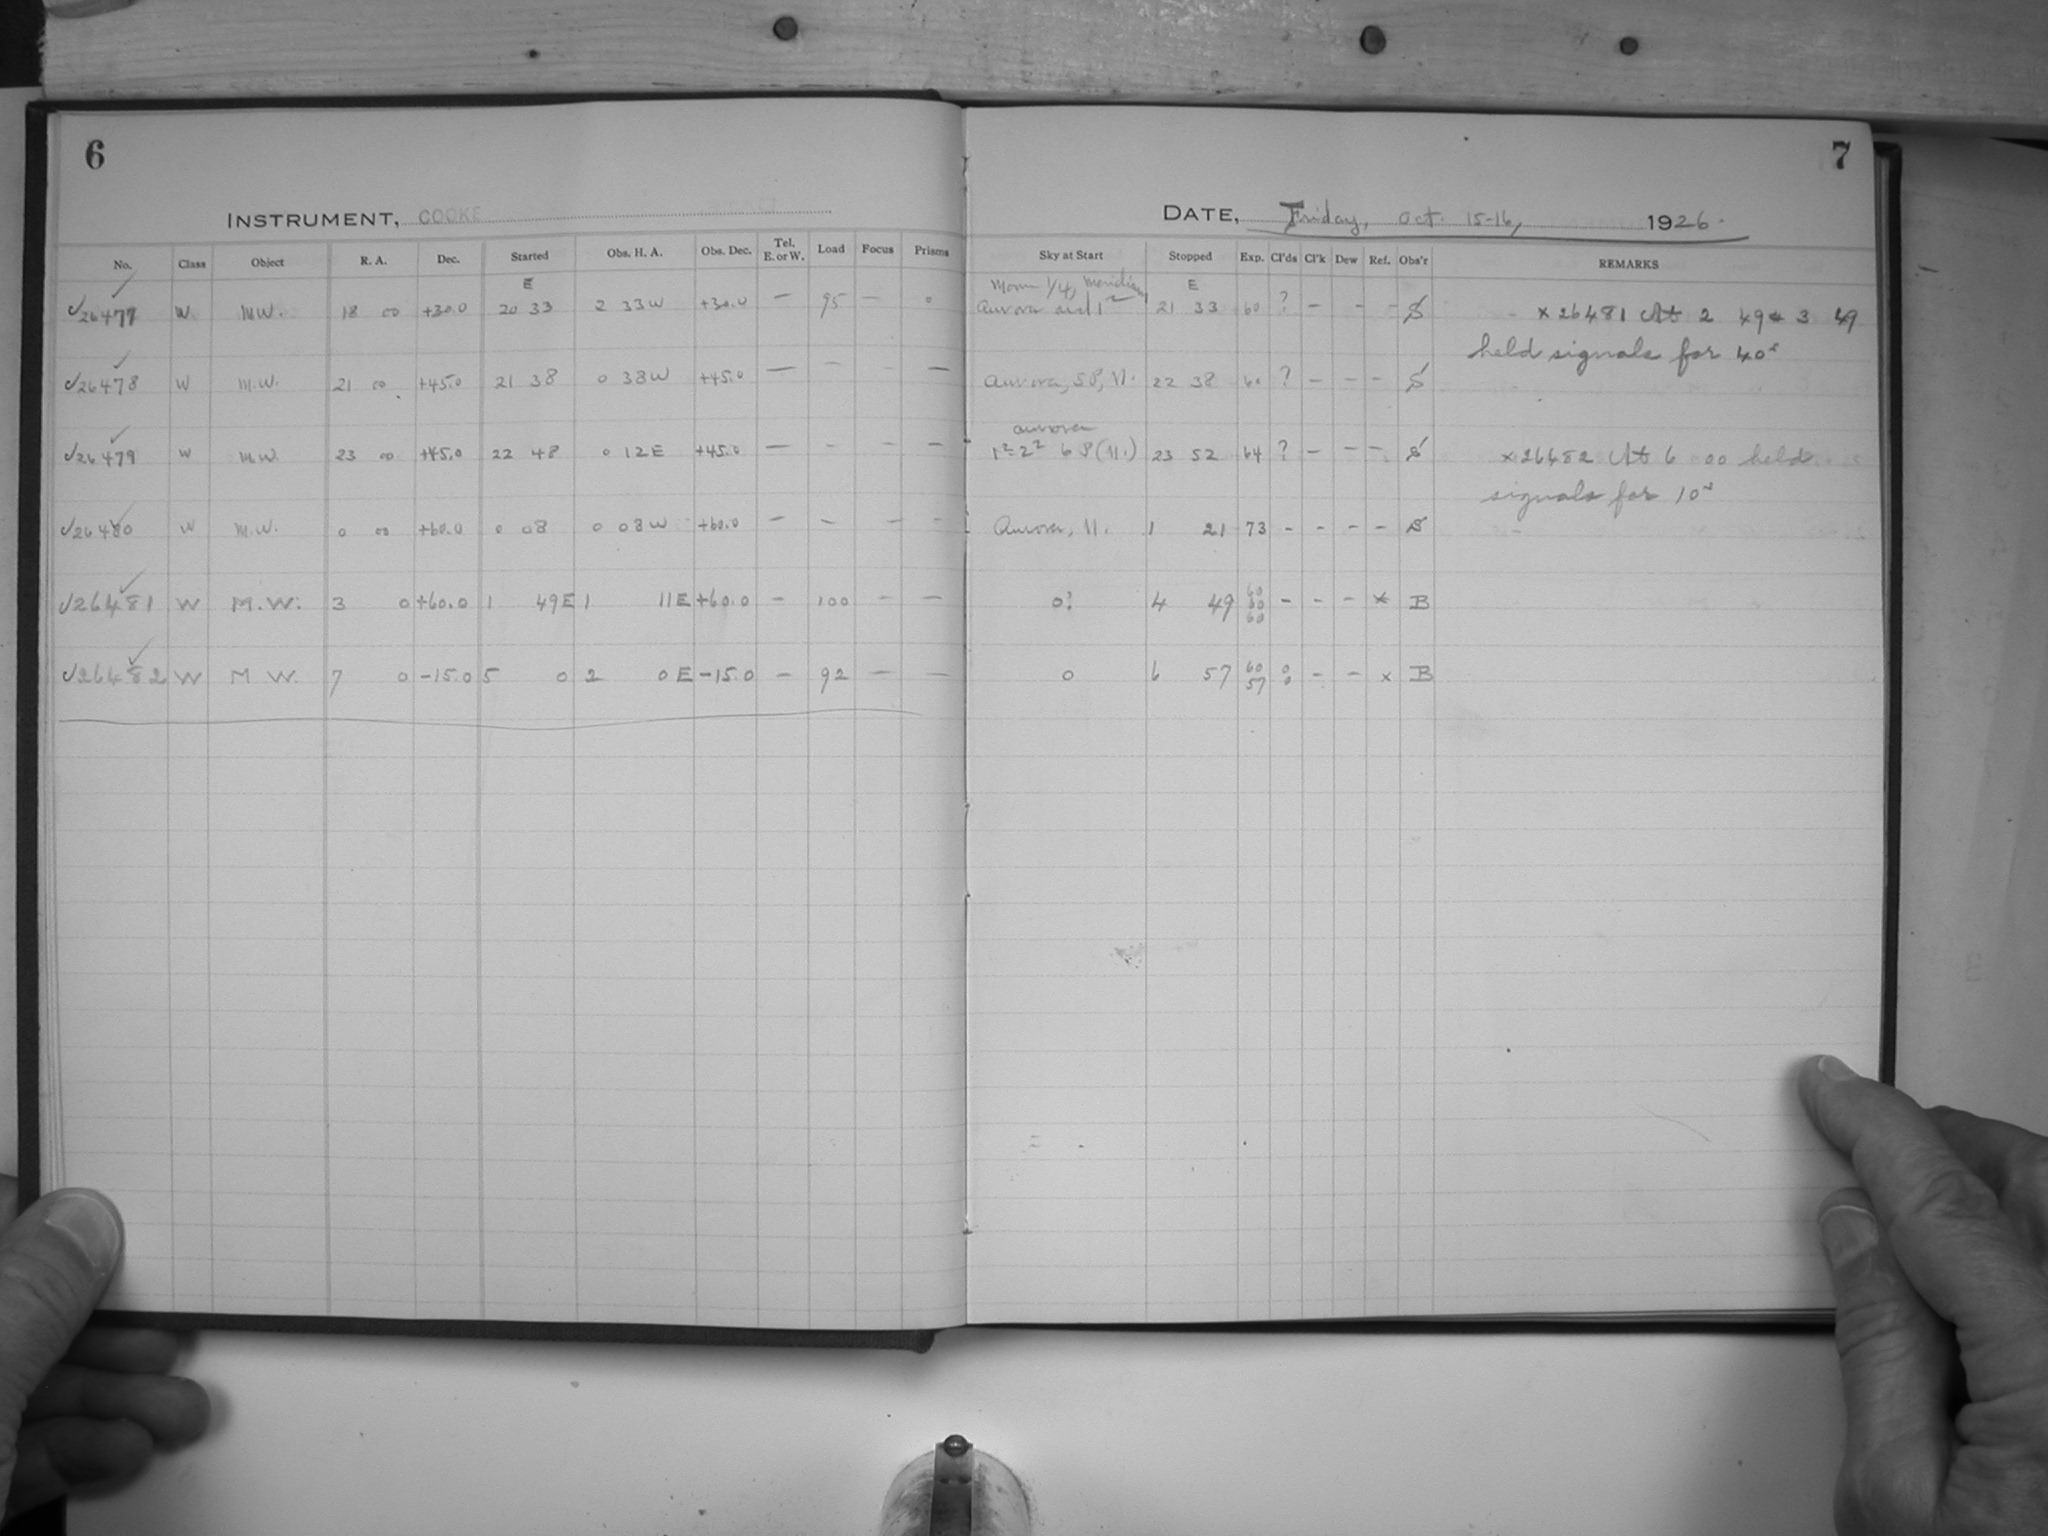 6
INSTRUMENT, COOKE
No. Class Object R. A. Dec. Started Obs. H. A. Obs. Dec. Tel. E. or W. Load Focus Prisms
E
✓26477 W MW. 18 00 +30.0 20 33 2 33W +30.0 — 95 — 0
✓26478 W M.W. 21 00 +45.0 21 38 0 38W +45.0 — — — —
✓26479 W M.W. 23 00 +45.0 22 48 0 12E +45.0 — — — —
✓26480 W M.W. 0 00 +60.0 0 08 0 08W +60.0 — — — —
✓26481 W M.W. 3 0 +60.0 1 49E 1 11E +60.0 — 100 — —
✓26482 W M W. 7 0 -15.0 5 0 2 0E -15.0 — 92 — —
7
DATE, Friday, Oct. 15-16, 1926.
Sky at Start Stopped Exp. Cl'ds Cl'k Dew Ref. Obs'r REMARKS
Moon 1/4, Meridian E
Aurora and 21 33 60 ? — — — S
x 26481 At 2 49 & 3 49
held signals for 40s
Aurora, SP, N. 22 38 60 ? — — — S
aurora
23 52 64 ? — — — S
x 26482 At 6 00 held
signals for 10s
Aurora, N. 1 21 73 — — — — S
0? 4 49 60 60 60 — — — x B
0 6 57 60 57 0 0 — — x B